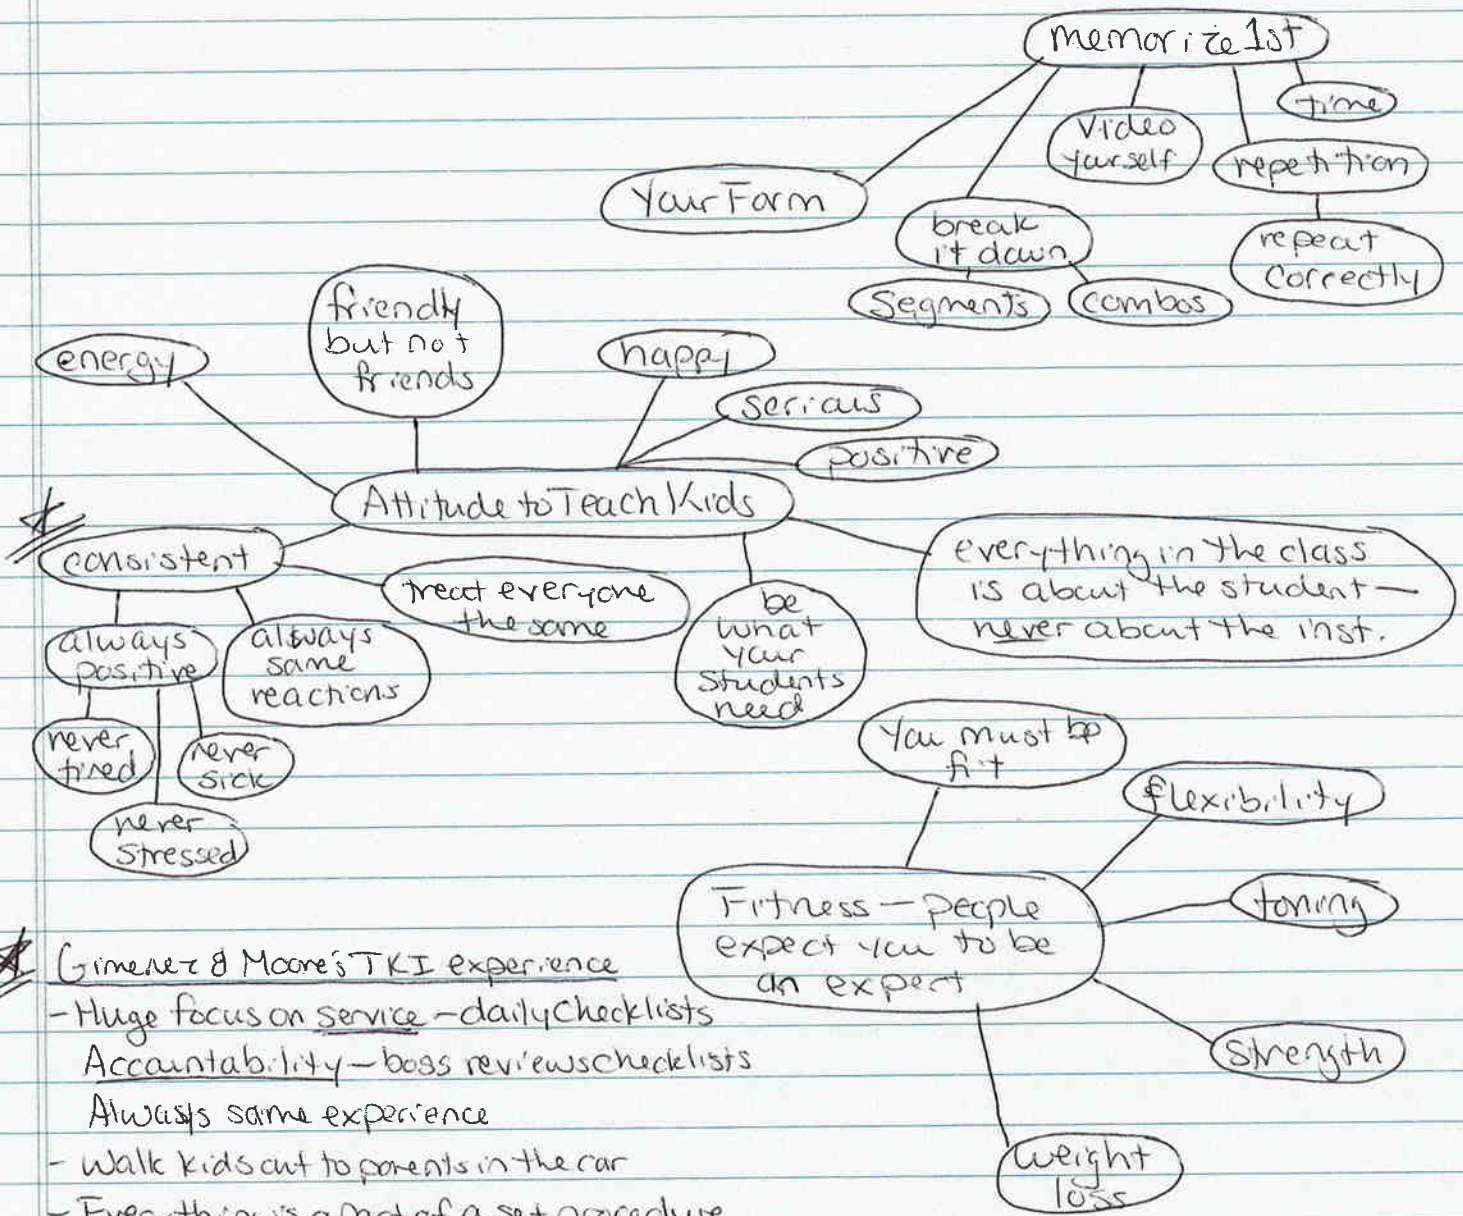 Memorize 1st
time
Video
yourself
repetition
Your Form
break
it down
repeat
correctly
Segments
combos
friendly
but not
friends
energy
happy
serious
positive
Attitude to Teach Kids
consistent
treat everyone
the same
everything in the class
is about the student —
never about the inst.
be
what
your
students
need
always
positive
always
same
reactions
never
tired
never
sick
never
stressed
You must be
fit
flexibility
Fitness — people
expect you to be
an expert
toning
strength
weight
loss
Gimenez & Moore's TKI experience
- Huge focus on service - daily checklists
Accountability - boss reviews checklists
Always same experience
- Walk kids out to parents in the car
- Everything is a part of a set procedure